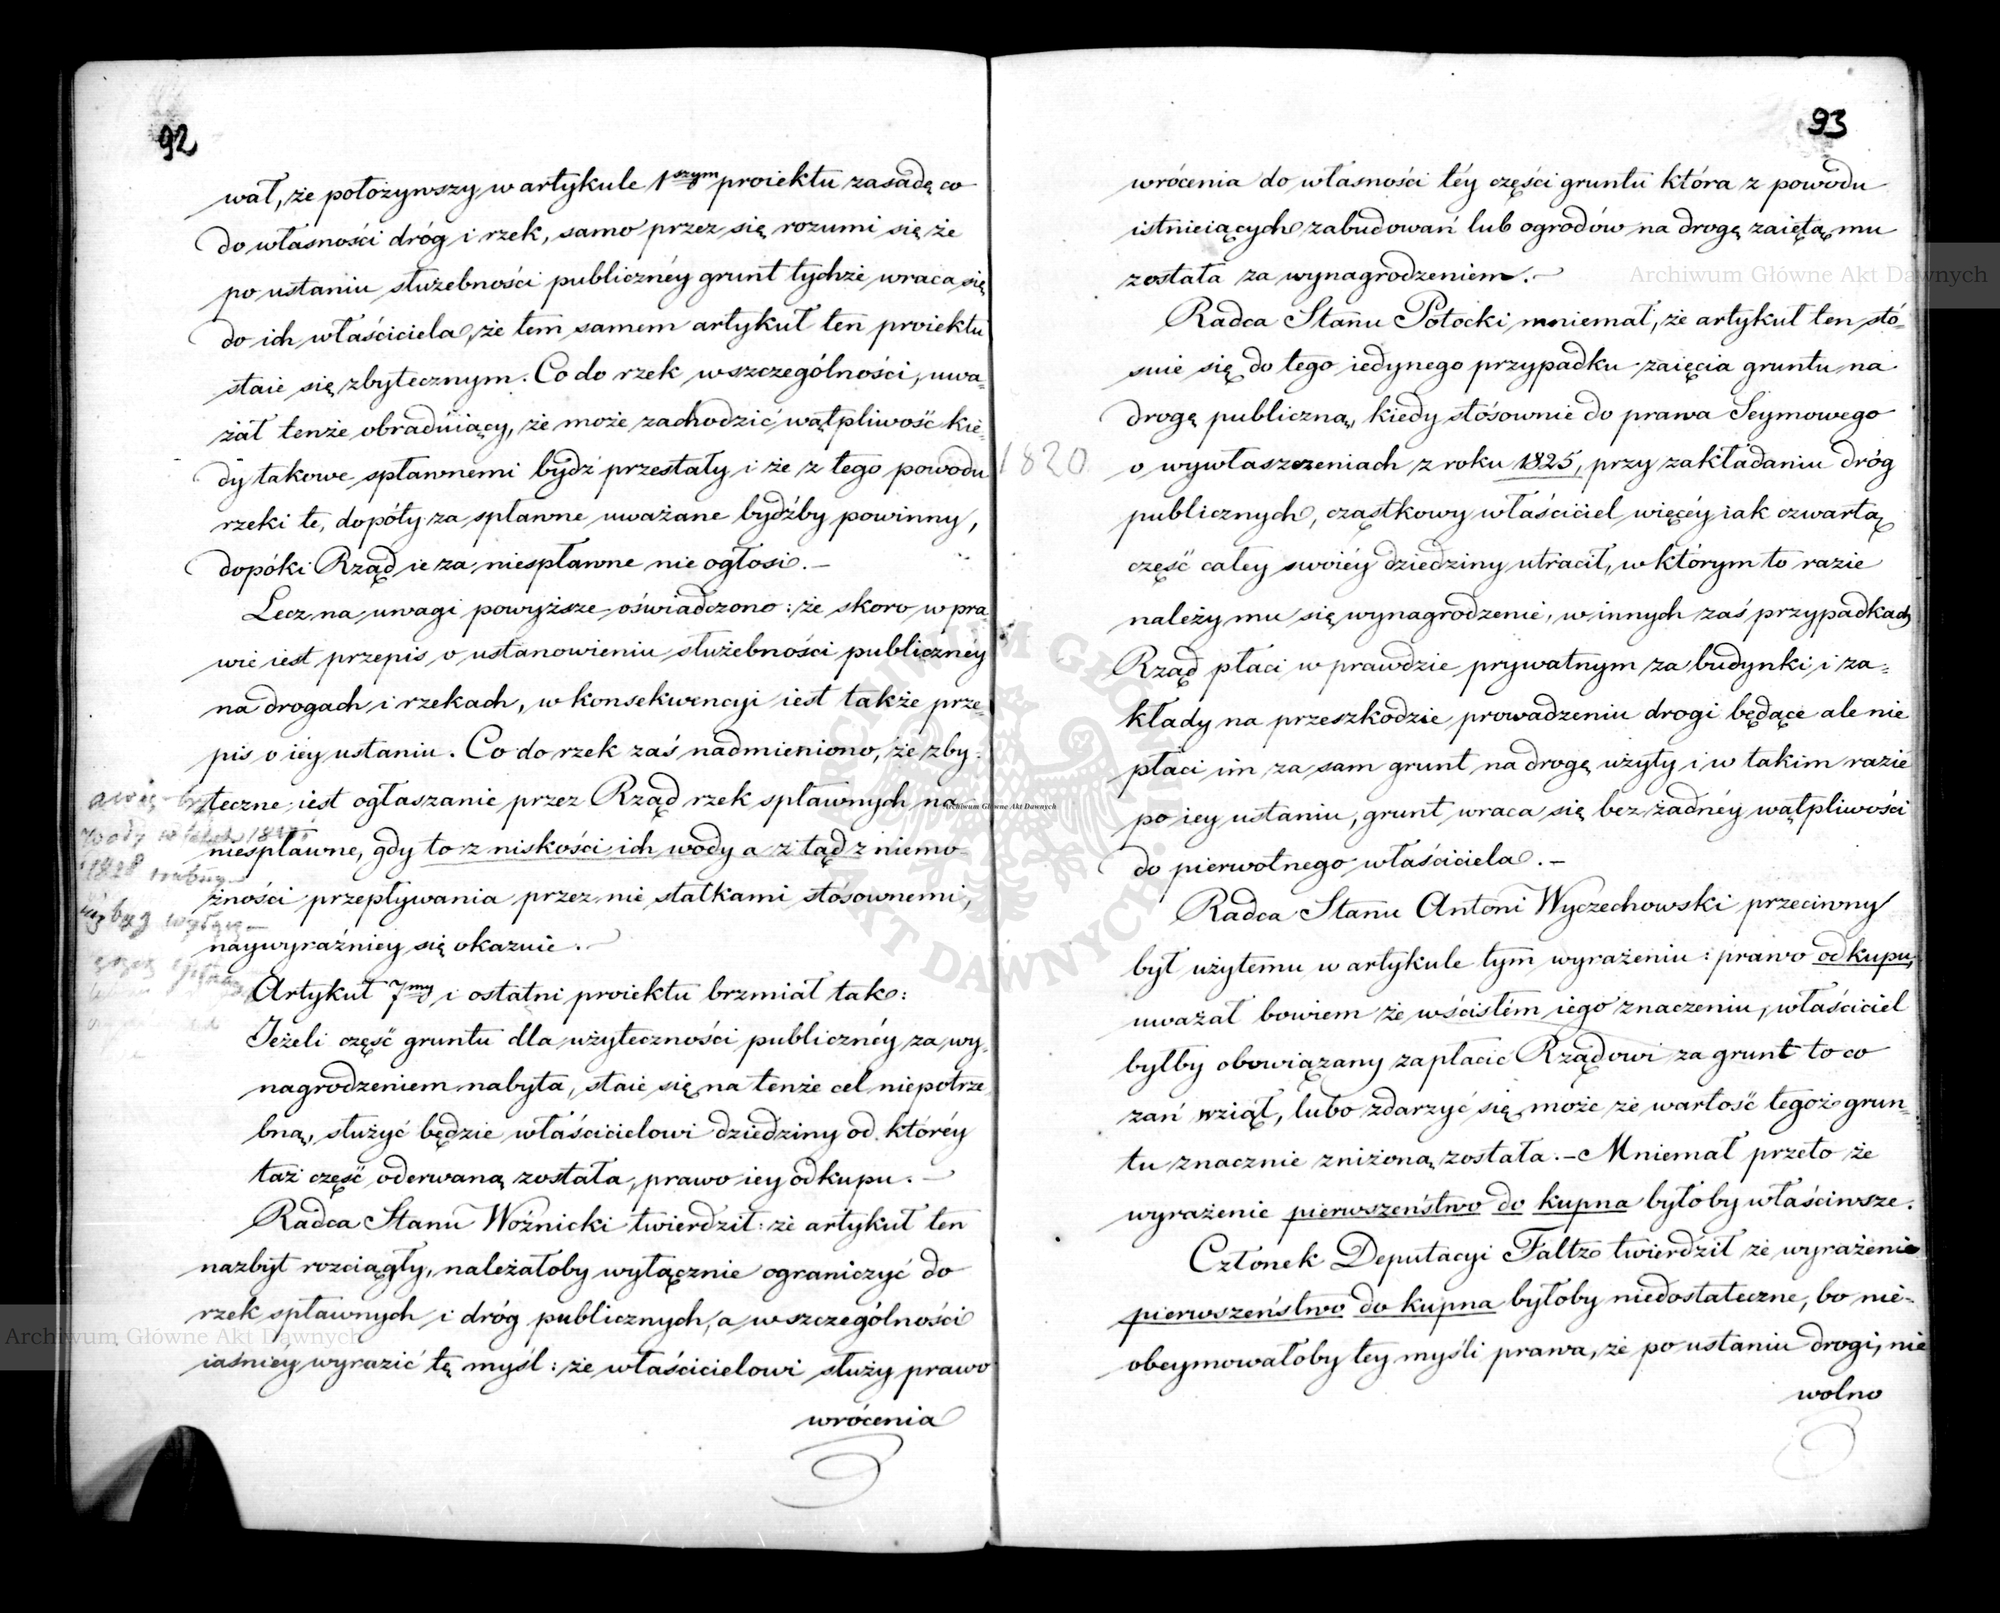 92
wał, że położywszy w artykule 1szym proiektu zasadę co
do własności dróg i rzek, samo przez się rozumi się że
po ustaniu służebności publicznéy grunt tychże wraca się
do ich właściciela, że tem samem artykuł ten proiektu
staie się zbytecznym. Co do rzek w szczególności, uwa-
żał tenże obraduiący, że może zachodzić wątpliwość kie-
dy takowe spławnemi bydź przestały i że z tego powodu
rzeki te, dopóty za spławne uważane bydźby powinny,
dopóki Rząd ie za niespławne nie ogłosi. —
Lecz na uwagi powyższe oświadczono: że skoro w pra
wie iest przepis o ustanowieniu służebności publicznéy
na drogach i rzekach, w konsekwencyi iest także prze-
pis o iéy ustaniu. Co do rzek zaś nadmieniono, że zby-
teczne iest ogłaszanie przez Rząd rzek spławnych na
niespławne, gdy to z niskości ich wody a z tąd z niemo-
żności przepływania przez nie statkami stósownemi,
naywyraźniey się okazuie. —
Artykuł 7my i ostatni proiektu brzmiał tak:
Jeżeli część gruntu dla użyteczności publicznéy za wy-
nagrodzeniem nabyta, staie się na tenże cel niepotrze
bną, służyć będzie właścicielowi dziedziny od któréy
taż część oderwaną została, prawo iey odkupu. —
Radca Stanu Woźnicki twierdził: że artykuł ten
nazbyt rozciągły, należałoby wyłącznie ograniczyć do
rzek spławnych i dróg publicznych, a w szczególności
iaśniéy wyrazić tę myśl: że właścicielowi służy prawo
wrócenia
1828
93
wrócenia do własności téy części gruntu która z powodu
istnieiących zabudowań lub ogrodów na drogę zaiętą mu
została za wynagrodzeniem. —
Radca Stanu Potocki mniemał, że artykuł ten stó-
suie się do tego iedynego przypadku zaięcia gruntu na
drogę publiczną, kiedy stósownie do prawa Seymowego
1820
o wywłaszczeniach z roku 1825, przy zakładaniu dróg
publicznych, cząstkowy właściciel więcéy iak czwartą
część całey swoiéy dziedziny utracił, w którym to razie
należy mu się wynagrodzenie, w innych zaś przypadkach
Rząd płaci w prawdzie prywatnym za budynki i za-
kłady na przeszkodzie prowadzeniu drogi będące ale nie
płaci im za sam grunt na drogę użyty i w takim razie
po iey ustaniu, grunt wraca się bez żadnéy wątpliwości
do pierwotnego właściciela. —
Radca Stanu Antoni Wyczechowski przeciwny
był użytemu w artykule tym wyrażeniu: prawo odkupu,
uważał bowiem że w ścisłém iego znaczeniu, właściciel
byłby obowiązany zapłacić Rządowi za grunt to co
zań wziął, lubo zdarzyć się może że wartość tegoż grun-
tu znacznie zniżoną została. — Mniemał przeto że
wyrażenie pierwszeństwo do kupna byłoby właściwsze.
Członek Deputacyi Faltz twierdził że wyrażenie
pierwszeństwo do kupna byłoby niedostateczne, bo nie-
obeymowałoby téy myśli prawa, że po ustaniu drogi, nie
wolno
Archiwum Główne Akt Dawnych
Archiwum Główne Akt Dawnych
Archiwum Główne Akt Dawnych
ARCHIWUM GŁÓWNE AKT DAWNYCH